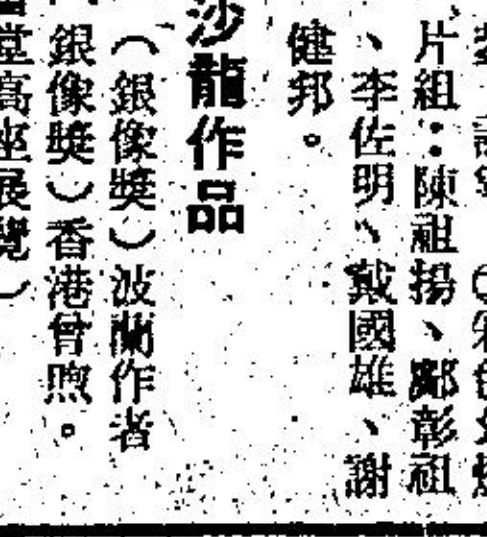 片組：陳祖揚、鄺彰祖
、李佐明、戴國雄、謝
健邦。
沙龍作品
（銀像獎）波蘭作者
銀像獎）香港曾煦。
堂高座展覽）